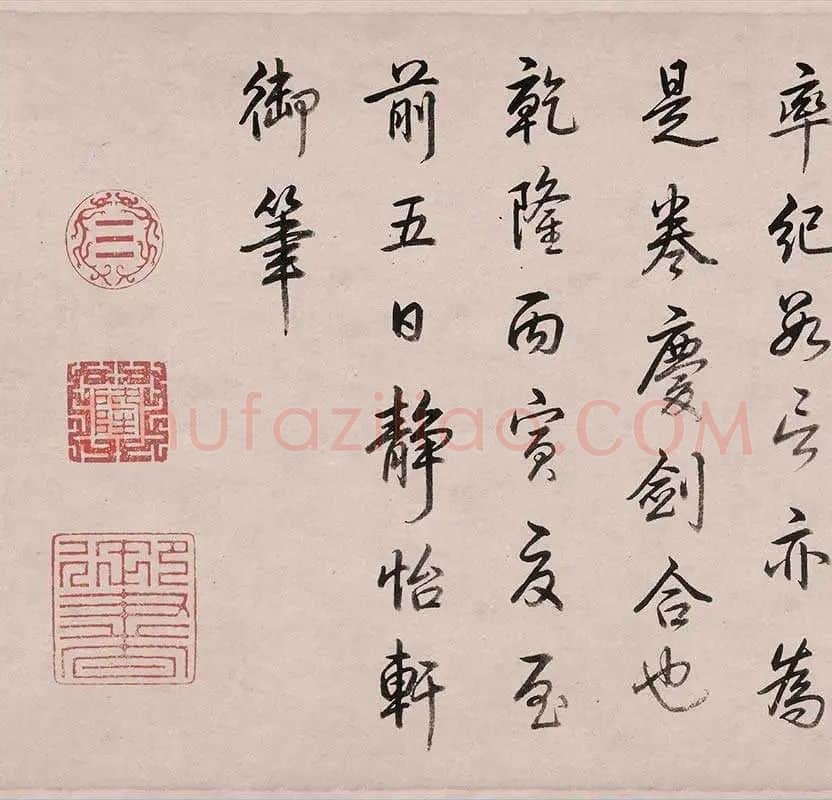 率紀數言亦為
是卷慶劍合也
乾隆丙寅夏至
前五日靜怡軒
御筆
shufaziliao.COM